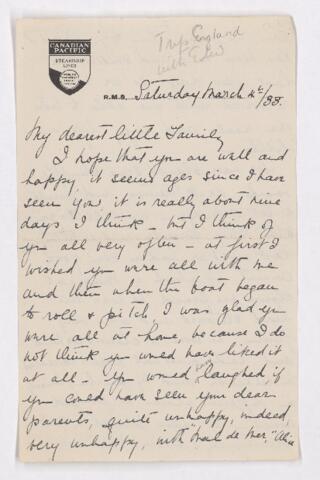 CANADIAN
PACIFIC
STEAMSHIP
LINES
Trip England
with Edw
R.M.S. Saturday March 4th/33.
My dearest little Family,
I hope that you are well and
happy, it seems ages since I have
seen you it is really about nine
days I think - but I think of
you all very often - at first I
wished you were all with me
and then when the boat began
to roll & pitch I was glad you
were all at home, because I do
not think you would have liked it
at all - You would laughed if
you could have seen your dear
parents, quite unhappy, indeed,
very unhappy, with "mal de mer,"